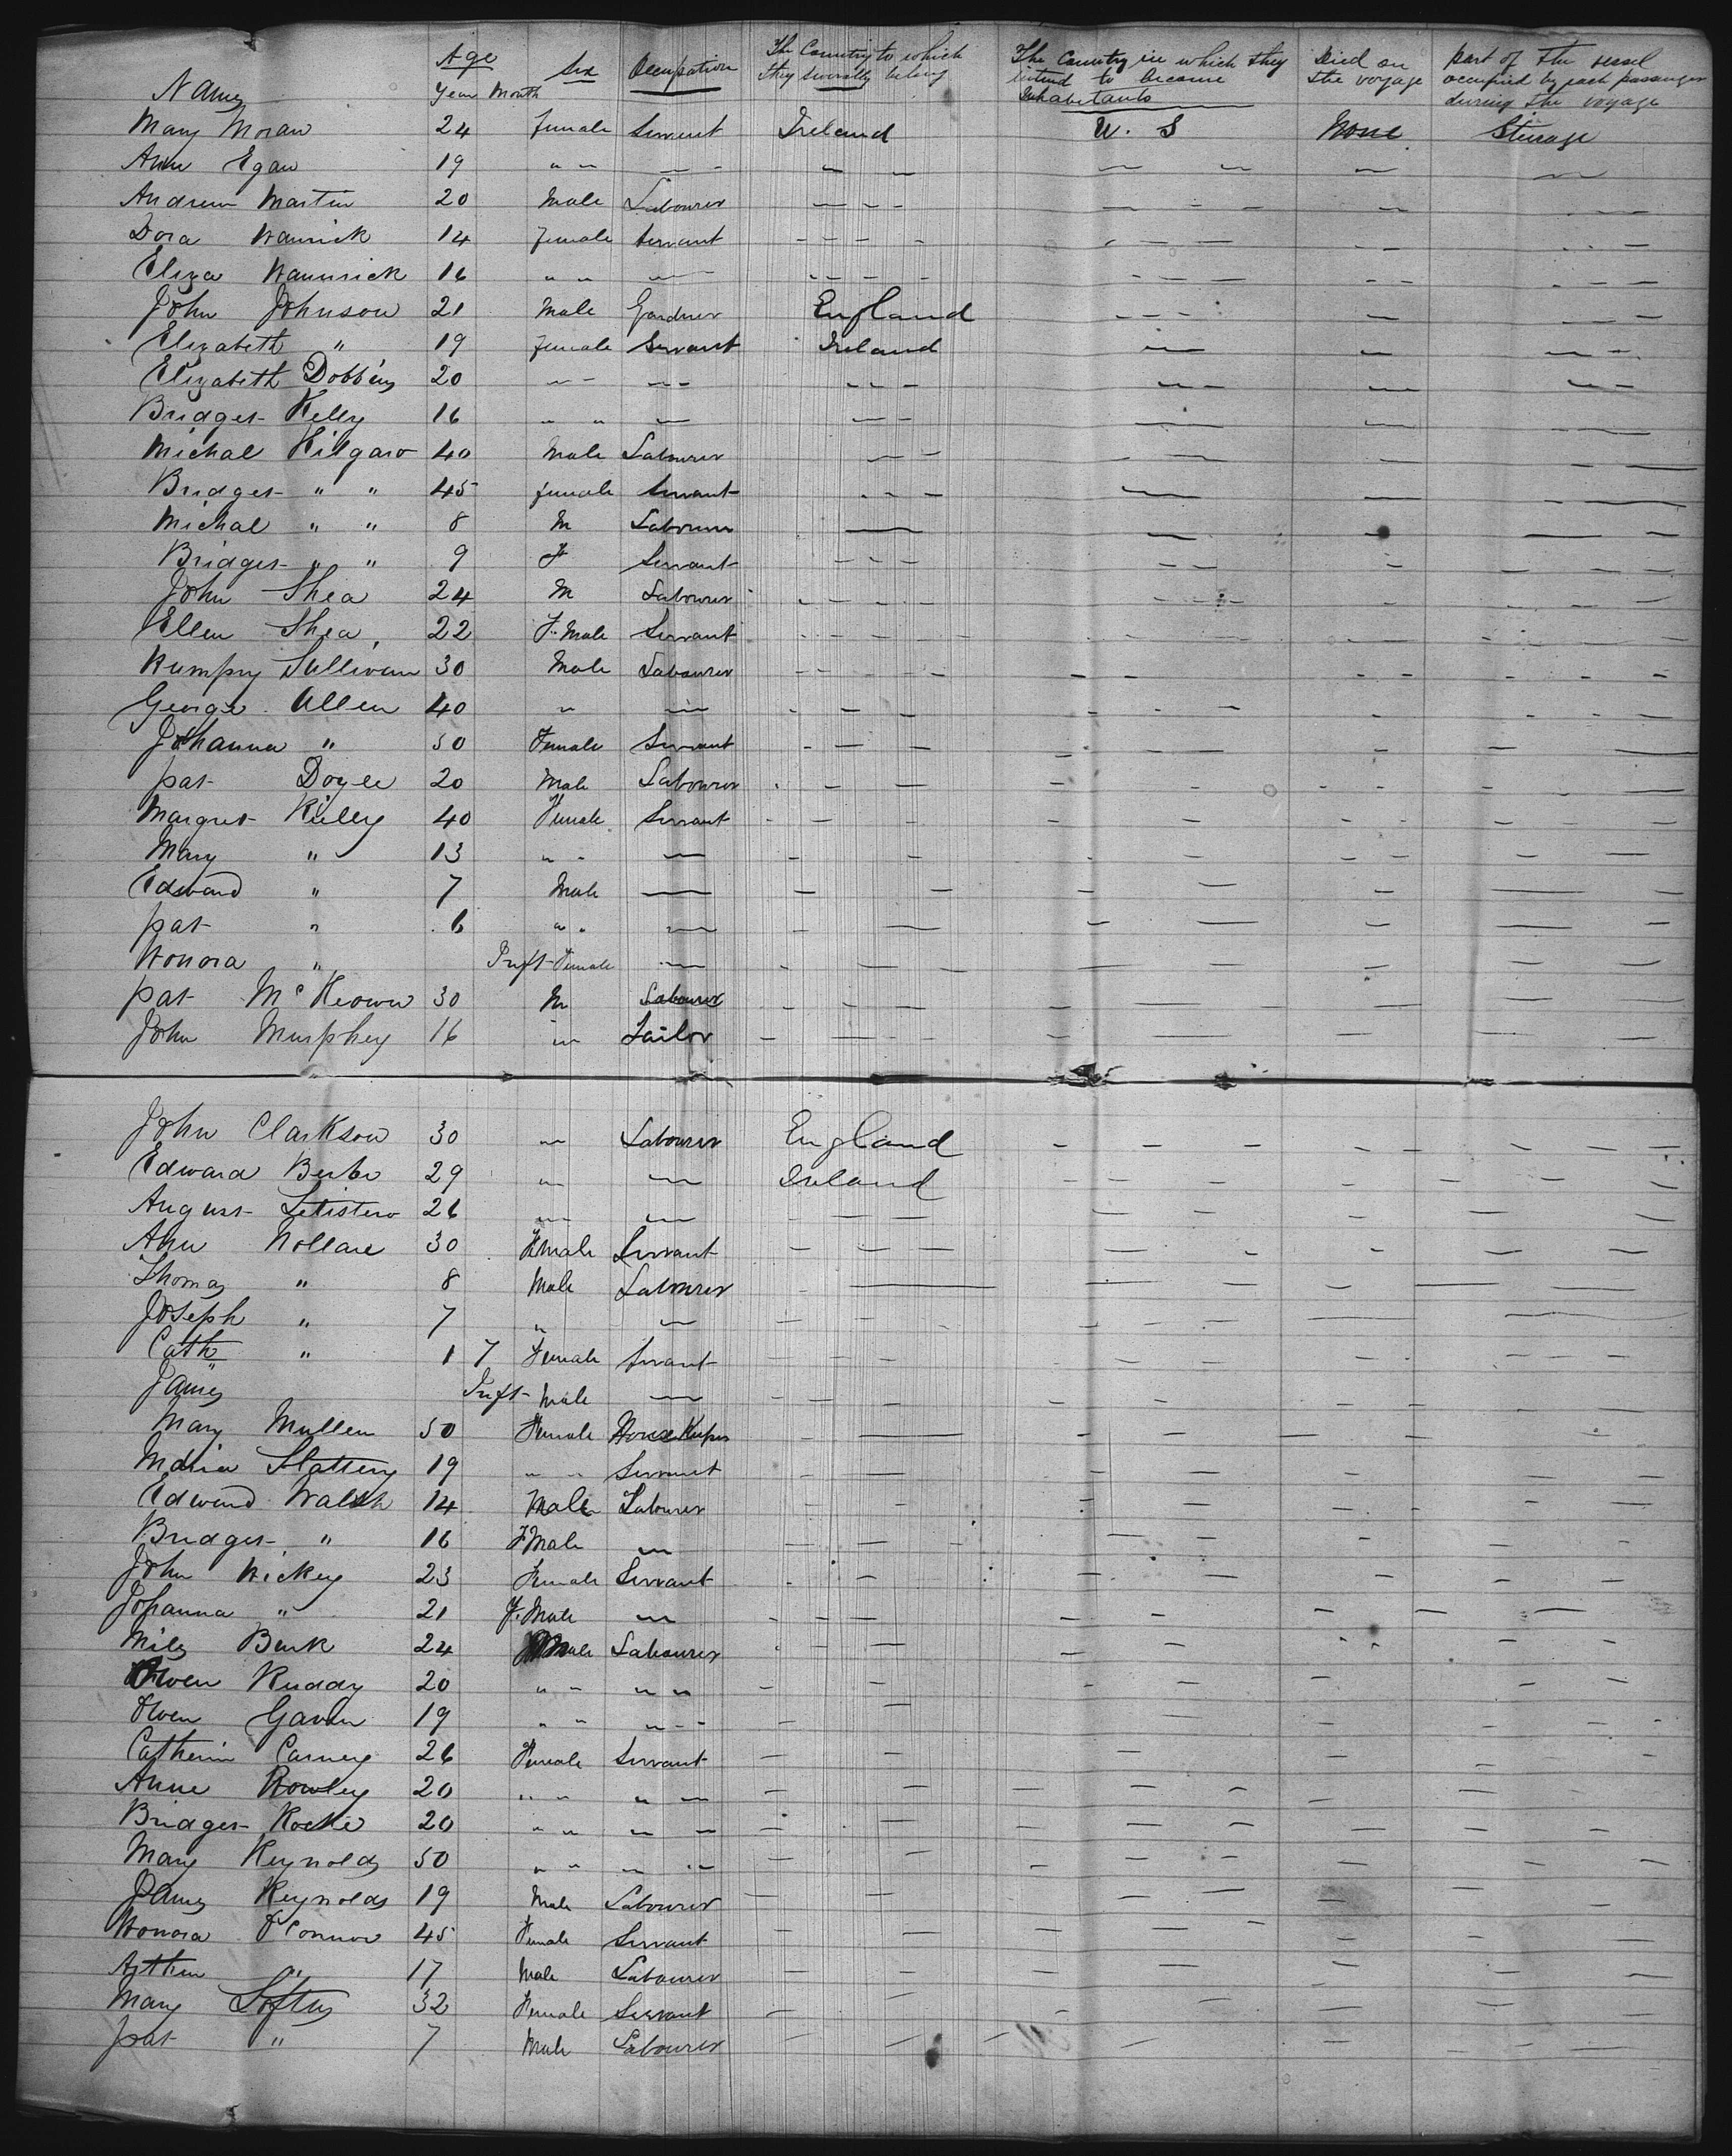 Names Age Year Month Sex Occupation The Country to which they severally belong The Country in which they intend to become Inhabitants Died on the voyage part of the vessel occupied by each passenger during the voyage
Mary Moran 24 female Servent Ireland U. S None Steerage
Ann Egan 19 " " — —
Andrew Martin 20 Male Labourer
Dora 14 female Servant
Eliza 16 " "
John Johnson 21 Male Gardner England
Elizabeth " 19 female Servant Ireland
Elizabeth Dobbins 20
Bridget Kelly 16 " "
Michal Kilgaro 40 Male Labourer
Bridget " " 45 female Servant
Michal " " 8 M Labourer
Bridget " " 9 F Servant
John Shea 24 M Labourer
Ellen Shea 22 F. Male Servant
Sullivan 30 Male Labourer
George Allen 40 "
Johanna " 50 Female Servant
pat Doyle 20 Male Labourer
Margret 40 Female Servant
Mary " 13 " "
Edward " 7 Male
pat " 6 " "
Honora " Inft Female
pat McKeown 30 M Labourer
John Murphey 16 " Tailor
John Clarkson 30 " Labourer England
Edward 29 " Ireland
August 26 "
Ann 30 Female Servant
Thomas " 8 Male Labourer
Joseph " 7 "
Cath " 1 7 Female Servant
James " Inft Male
Mary Mullen 50 Female House Keeper
Maria Slattery 19 " " Servant
Edward Walsh 14 Male Labourer
Bridget " 16 F Male "
John Hickey 23 Female Servant
Johanna " 21 F. Male "
Miles Burk 24 Male Labourer
Owen Ruddy 20 " " " "
Owen Gaven 19 " " "
Catherin Carney 26 Female Servant
Anne Rowley 20 " " "
Bridget Roche 20 " " "
Mary Reynolds 50 " " "
James Reynolds 19 Male Labourer
Honora O'Connor 45 Female Servant
" 17 Male Labourer
Mary Loftus 32 Female Servant
pat " 7 Male Labourer